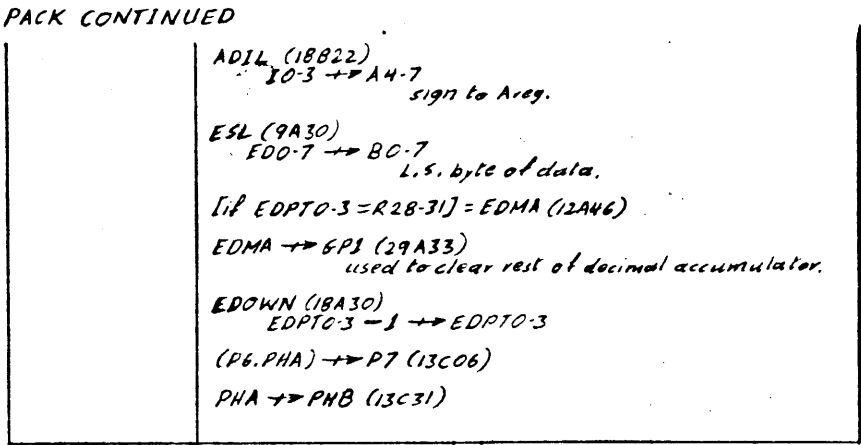 PACK CONTINUED
ADIL (18B22)
I0-3 +→ A4-7
sign to Areg.
ESL (9A30)
ED0-7 +→ B0-7
L.S. byte of data.
[if EDPT0-3 = R28-31] = EDMA (12A46)
EDMA +→ GP1 (29A33)
used to clear rest of decimal accumulator.
EDOWN (18A30)
EDPT0-3 -1 +→ EDPT0-3
(P6.PHA) +→ P7 (13C06)
PHA +→ PHB (13C31)